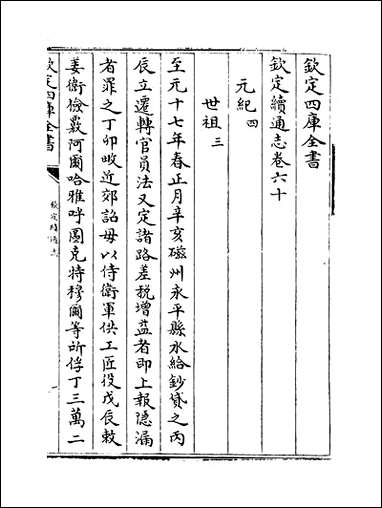 欽定四庫全書
欽定續通志卷六十
元紀四
世祖三
至元十七年春正月辛亥磁州永平縣水給鈔貸之丙
辰立遷轉官員法又定諸路差税增益者即上報隱漏
者罪之丁卯畋近郊詔毋以侍衛軍供工匠役戊辰敕
姜衛儉覈阿爾哈雅呼圖克特穆爾等所俘丁三萬二
欽定四庫全書
欽定續通志